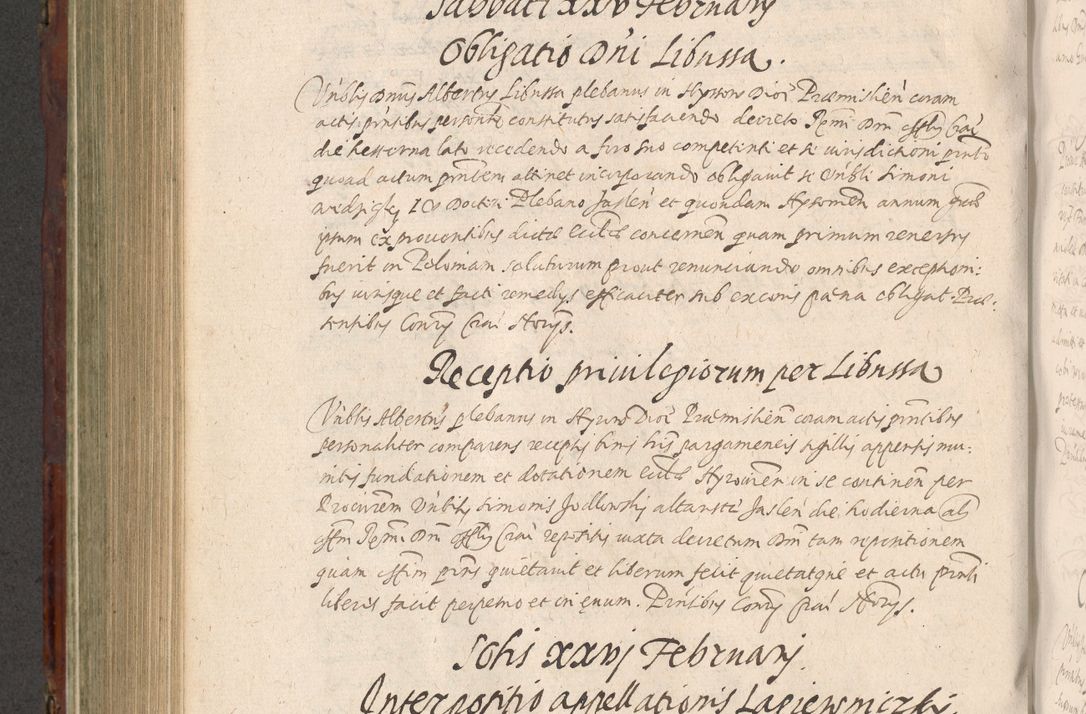 Sabbati xxv Februarÿ
Obligatio Dni Libussa.
Vnblis Dnus Albertus Libussa plebanus in Hyrow Dioc Præmislien coram
actis pntibus personlr constitutus satisfaciendo decreto Rsmi Dni Offlis Crac
die hesterna lato recedendo a foro suo competenti et se iurisdictioni pnti
quoad actum pntem attinet incorporando obligauit se Vnbli Simoni
I V Doctori Plebano Jaslen et quondam Hyrowien annum
ipsum ex prouentibus dictæ Ecclæ concernen quam primum reuersus
fuerit in Poloniam soluturum prout renunciando omnibus exceptioni:
bus iurisque et facti remedijs efficaciter sub excomis pæna obligat. Præ:
sentibus Conrz Crac Notrijs.
Receptio priuilegiorum per Libussa
Vnblis Albertus plebanus in Hyrow Dioc Præmislien coram actis pntibus
personaliter comparens receptis binis lris pargameneis sigillis appensis mu:
nitis fundationem et dotationem Ecclæ Hyrowien in se continen per
Procurem Vnblis Simonis Jodlowskj altaristæ Jaslen die hodierna ab
Offm Rsmi Dni Offlis Crac repositis iuxta decretum Dni tam reponentem
quam Offim pns quietauit et liberum fecit quietatque et actu pnti
liberos facit perpetuo et in æuum. Pntibus Conrz Crac Notrijs.
Solis xxvj Februarÿ
Interpositio appellationis Lagiewniczkj.